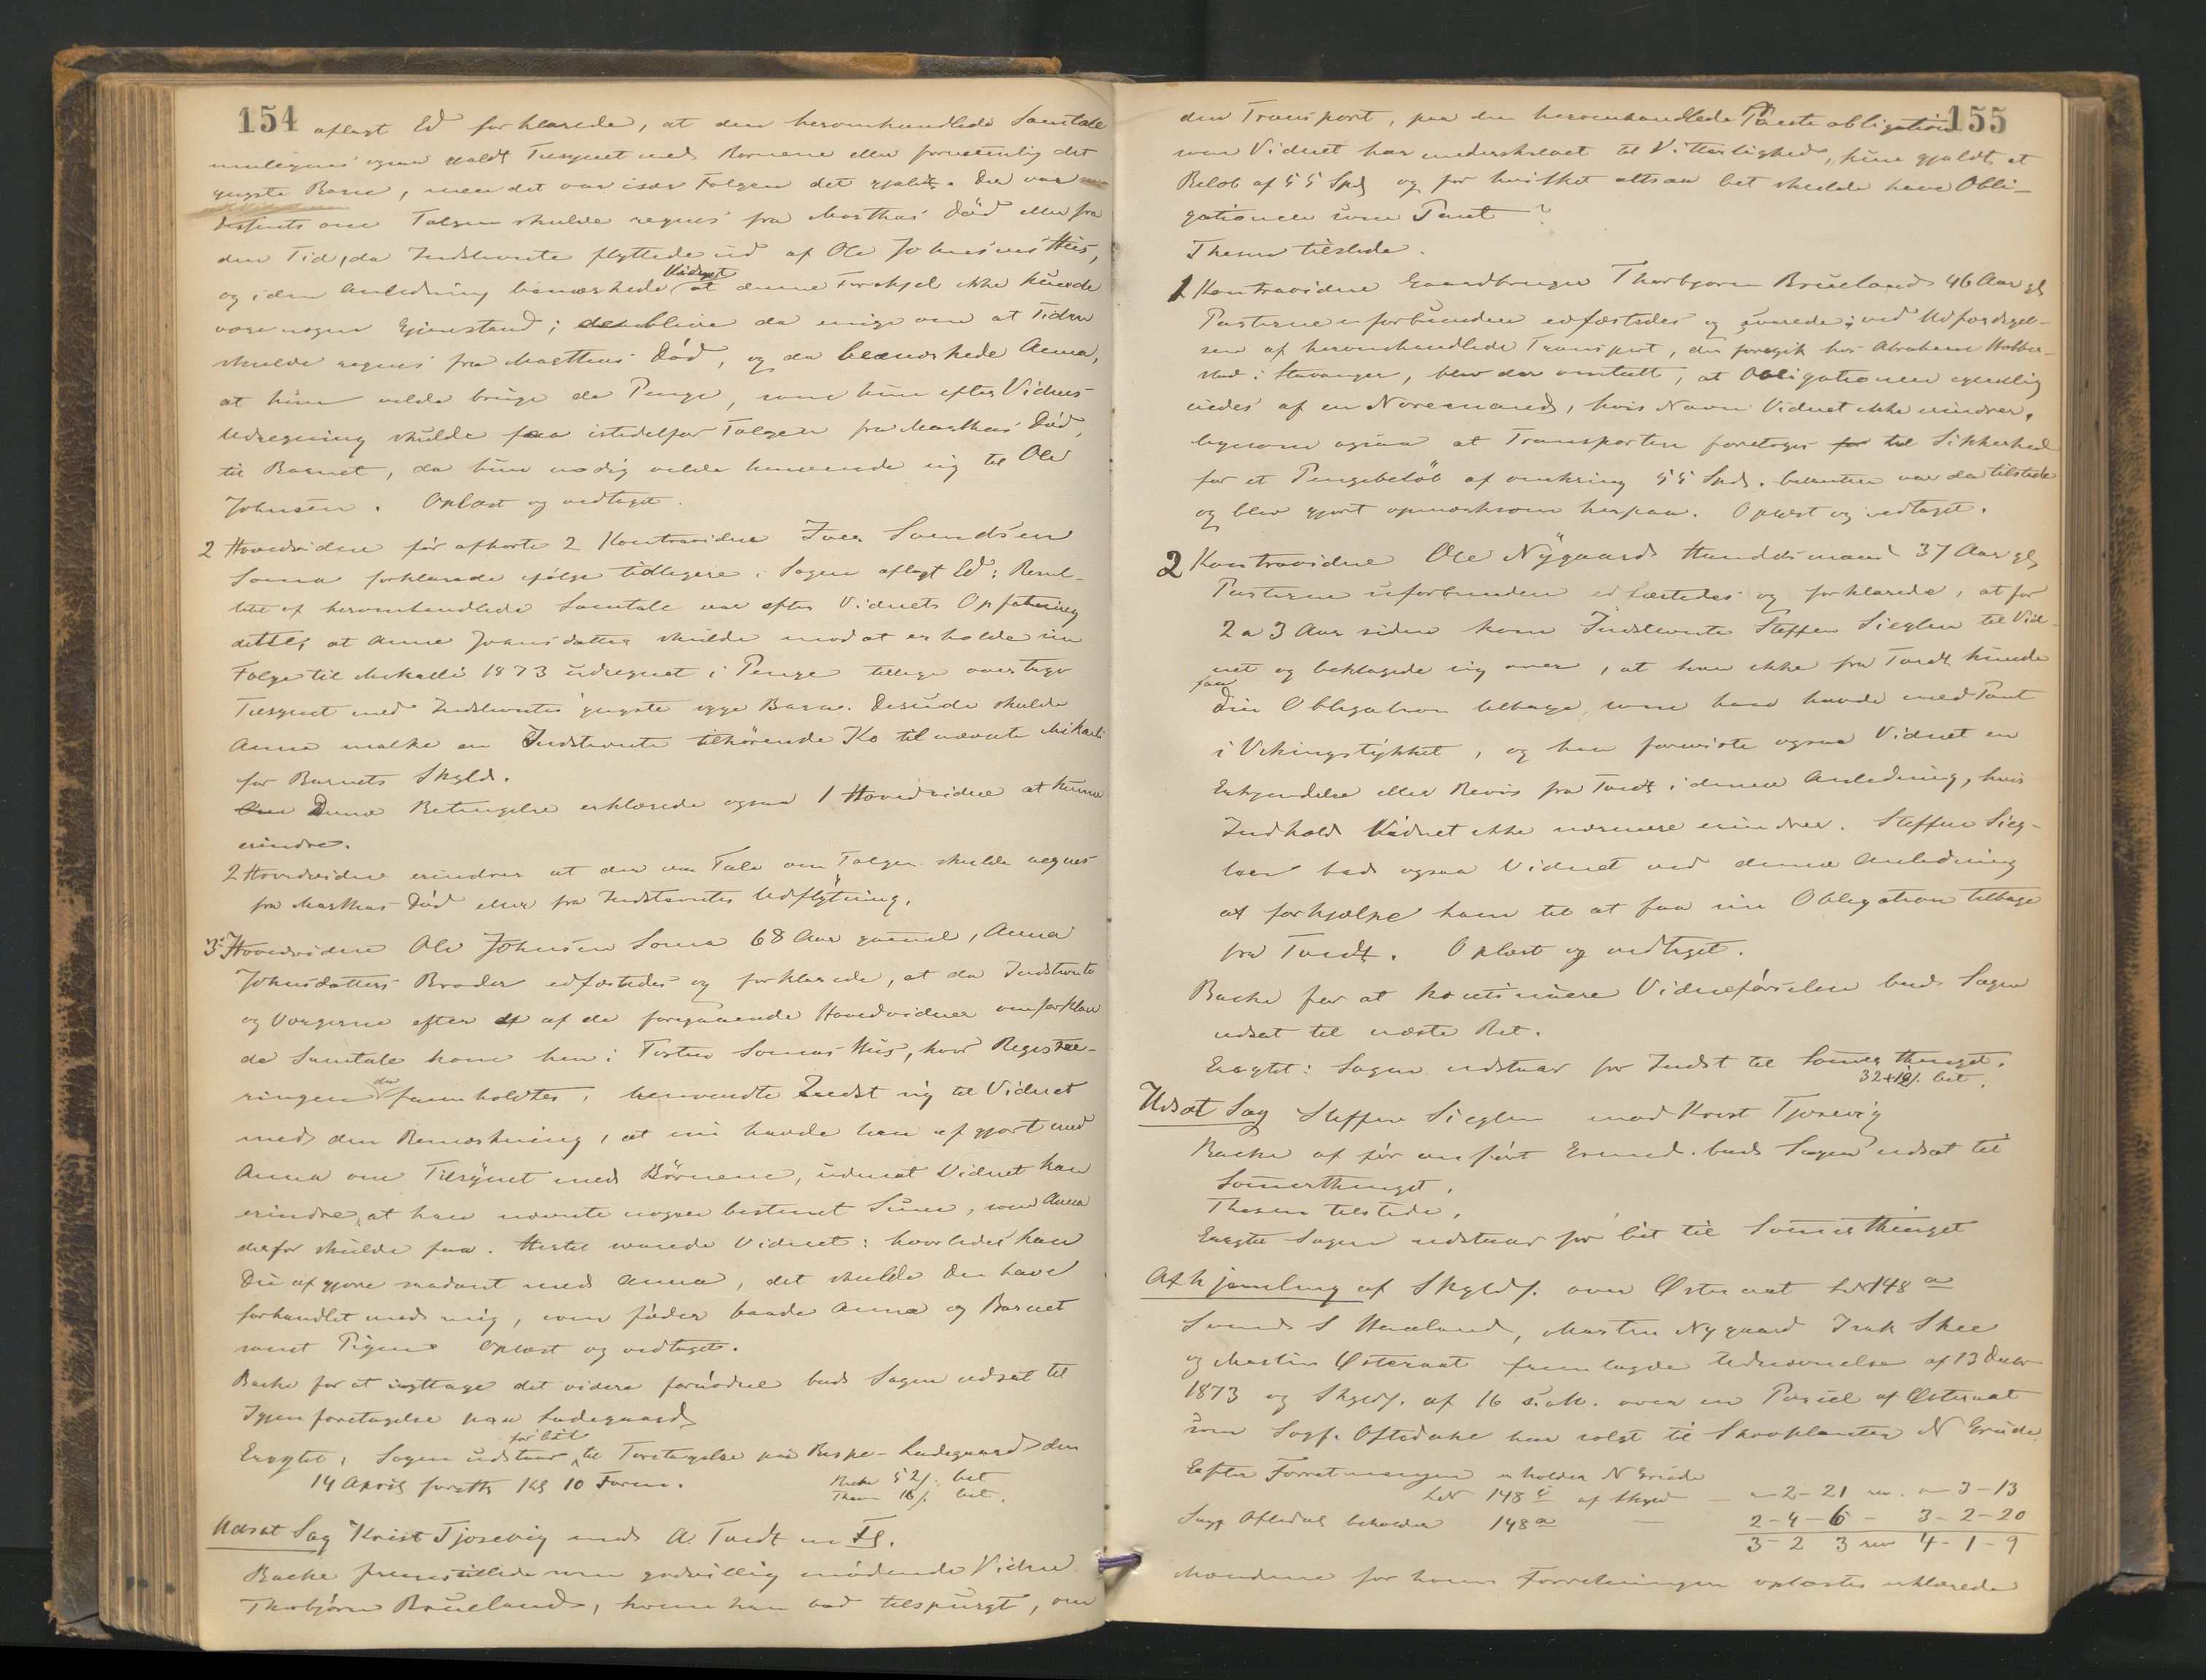 154
aflagt Ed forklarede, at den heromhandlede Samtale
muligens ogsaa gjaldt Tilsynet med Børnene eller fornemmelig det
yngste Barn, men det var især Følgen det gjaldt. Der var
Dissents om Følgen skulde regnes fra Marthas Död eller fra
den Tid, da Indstevnte flyttede ud af Ole Johnsens Hüs,
og i den Anledning bemærkede Vidnet at denne Forskjel ikke kunde
være nogen Gjenstand; de bleve da enige om at Tiden
skulde regnes fra Marthas Död, og da bemærkede Anna,
at hün vilde brüge de Penge, som hün efter Vidnets
Udregning skulde faa istedetfor Følgen fra Marthas Död,
til Barnet, da hün nødig vilde henvende sig til Ole
Johnsen. Oplæst og vedtaget.
2 Hovedvidne før afhørte 2 Kontravidne Iver Svendsen
Soma forklarede ifølge tidligere i Sagen aflagt Ed: Resul-
tatet af heromhandlede Samtale var efter Vidnets Opfatning
dette, at Anne Johnsdatter skulde mod at erholde sin
Følge til Mikaeli 1873 üdregnet i Penge tillige overtage
Tilsynet med Indstevntes yngste ægte Barn. Desuden skulde
Anna malke en Indstevnte tilhørende Ko til nævnte Mikaeli
for Barnets Skyld.
Denne Betingelse erklærede ogsaa 1 Hovedvidne at kunne
erindre.
2 Hovedvidne erindrer at der var Tale om Følgen skulde regnes
fra Marthas Död eller fra Indstevntes Udflytning.
3 Hovedvidne Ole Johnsen Soma 68 Aar gammel, Anna
Johnsdatters Broder edfæstedes og forklarede, at da Indstevnte
og Vergerne efter af de foregaaende Hovedvidner omforklare-
de Samtale kom hen i Torten Somas Hüs, hvor Registre-
ringen da fremholdtes, henvendte Indst sig til Vidnet
med den Bemærkning, at nü havde han afgjort med
Anna om Tilsynet med Börnene, üdenat Vidnet kan
erindre, at han nævnte nogen bestemt Süm, som Anna
derfor skulde faa. Hertil svarede Vidnet: hvorledes kan
Dü afgjøre saadant med Anna, det skulde Du have
forhandlet med mig, som föder baade Anna og Barnet
samt Pigen. Oplæst og vedtaget.
Backe for at iagttage det videre fornödne bad Sagen udsat til
Igjenforetagelse paa Ladegaard
Eragtet: Sagen üdstaar for bet til Foretagelse paa Bispe-Ladegaard den
14 April førstk Kl 10 Form.
Backe 52 /. bet
Thesen 16 /. bet.
Udsat Sag Krist Tjosevig mod A. Tvedt m Fl.
Backe fremstillede som godvillig mödende Vidne
Thorbjörn Brüeland, hvem han bad tilspürgt, om
155
den Transport, paa den heromhandlede Panteobligation
som Vidnet har underskrevet til Vitterlighed, küne gjaldt et
Beløb af 55 Spd og for hvilket altsaa bet skulde have Obli-
gationen som Pant?
Thesen tilstede.
1 Kontravidne Gaardbrüger Thorbjørn Brüeland 46 Aar gl
Parterne üforbünden edfæstedes og svarede: ved Udfærdigel-
sen af heromhandlede Transport, der foregik hos Abraham Habber-
stad i Stavanger, blev der omtalt, at Obligationen egentlig
eiedes af en Noremand, hvis Navn Vidnet ikke erindrer,
ligesom ogsaa at Transporten foretoges til Sikkerhed
for et Pengebelöb af omkring 55 Spd. bestevnte var da tilstede
og blev gjort opmærksom herpaa. Oplæst og vedtaget.
2 Kontravidne Ole Nÿgaard Handelsmand 37 Aar gl
Parterne üforbunden edfæstedes og forklarede, at for
2 a 3 Aar siden kom Indstevnte Steffen Sieglen til Vid-
net og beklagede sig over, at han ikke fra Tvedt künde
faa Din Obligation tilbage, som han havde med Pant
i Vikingstykket, og han foreviste ogsaa Vidnet en
Erkjendelse eller Bevis fra Tvedt i denne Anledning, hvis
Indhold Vidnet ikke nærmere erindrer. Steffen Sieg-
len bad ogsaa Vidnet ved denne Anledning
at forhjælpe ham til at faa sin Obligation tilbage
fra Tvedt. Oplæst og vedtaget.
Backe for at kontinüere Vidneförselen bad Sagen
udsat til næste Ret.
Eragtet: Sagen udstaar for Indst til Somerthinget.
32+12 /. bet.
Udsat Sag Steffen Sieglen mod Krist Tjosevig
Backe af för anfört Grund bad Sagen udsat til
Somerthinget.
Thesen tilstede.
Eragtet Sagen udstaar for bet til Somerthinget
Afhjemling af Skyldf. over Østeraat LN 148 a
Svend S Haaland, Martin Nygaard Isak Skee
og Martin Østeraat fremlagde Udnævnelse af 13 Decbr
1873 og Skyldf. af 16 s. M. over en Parcel af Østeraat
som Sagf. Oftedahl har solgt til Skovplanter N Grüde.
Efter Forretningen erholder N Grüde
LN 148 b af Skyld — " - 2 - 21 rev. " - 3 - 13
Sagf Oftedahl beholder 148 a — 2 - 4 - 6 - 3 - 2 - 20
3 - 2 3 rev 4 - 1 - 9
Mændene for hvem Forretningen oplæstes erklærede